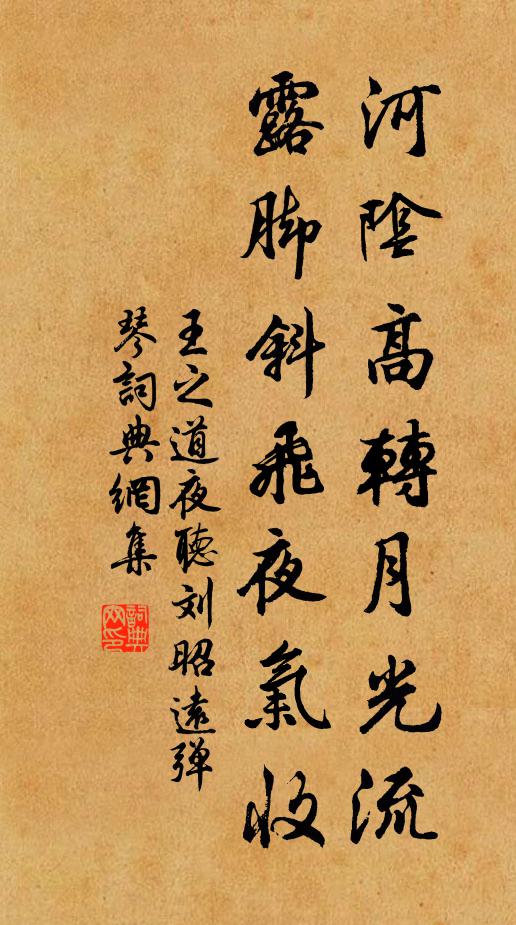 河陰高轉月光流
露脚斜飛夜氣收
王之道夜聽刘昭遠弹
琴詞典網集
詞典
网印